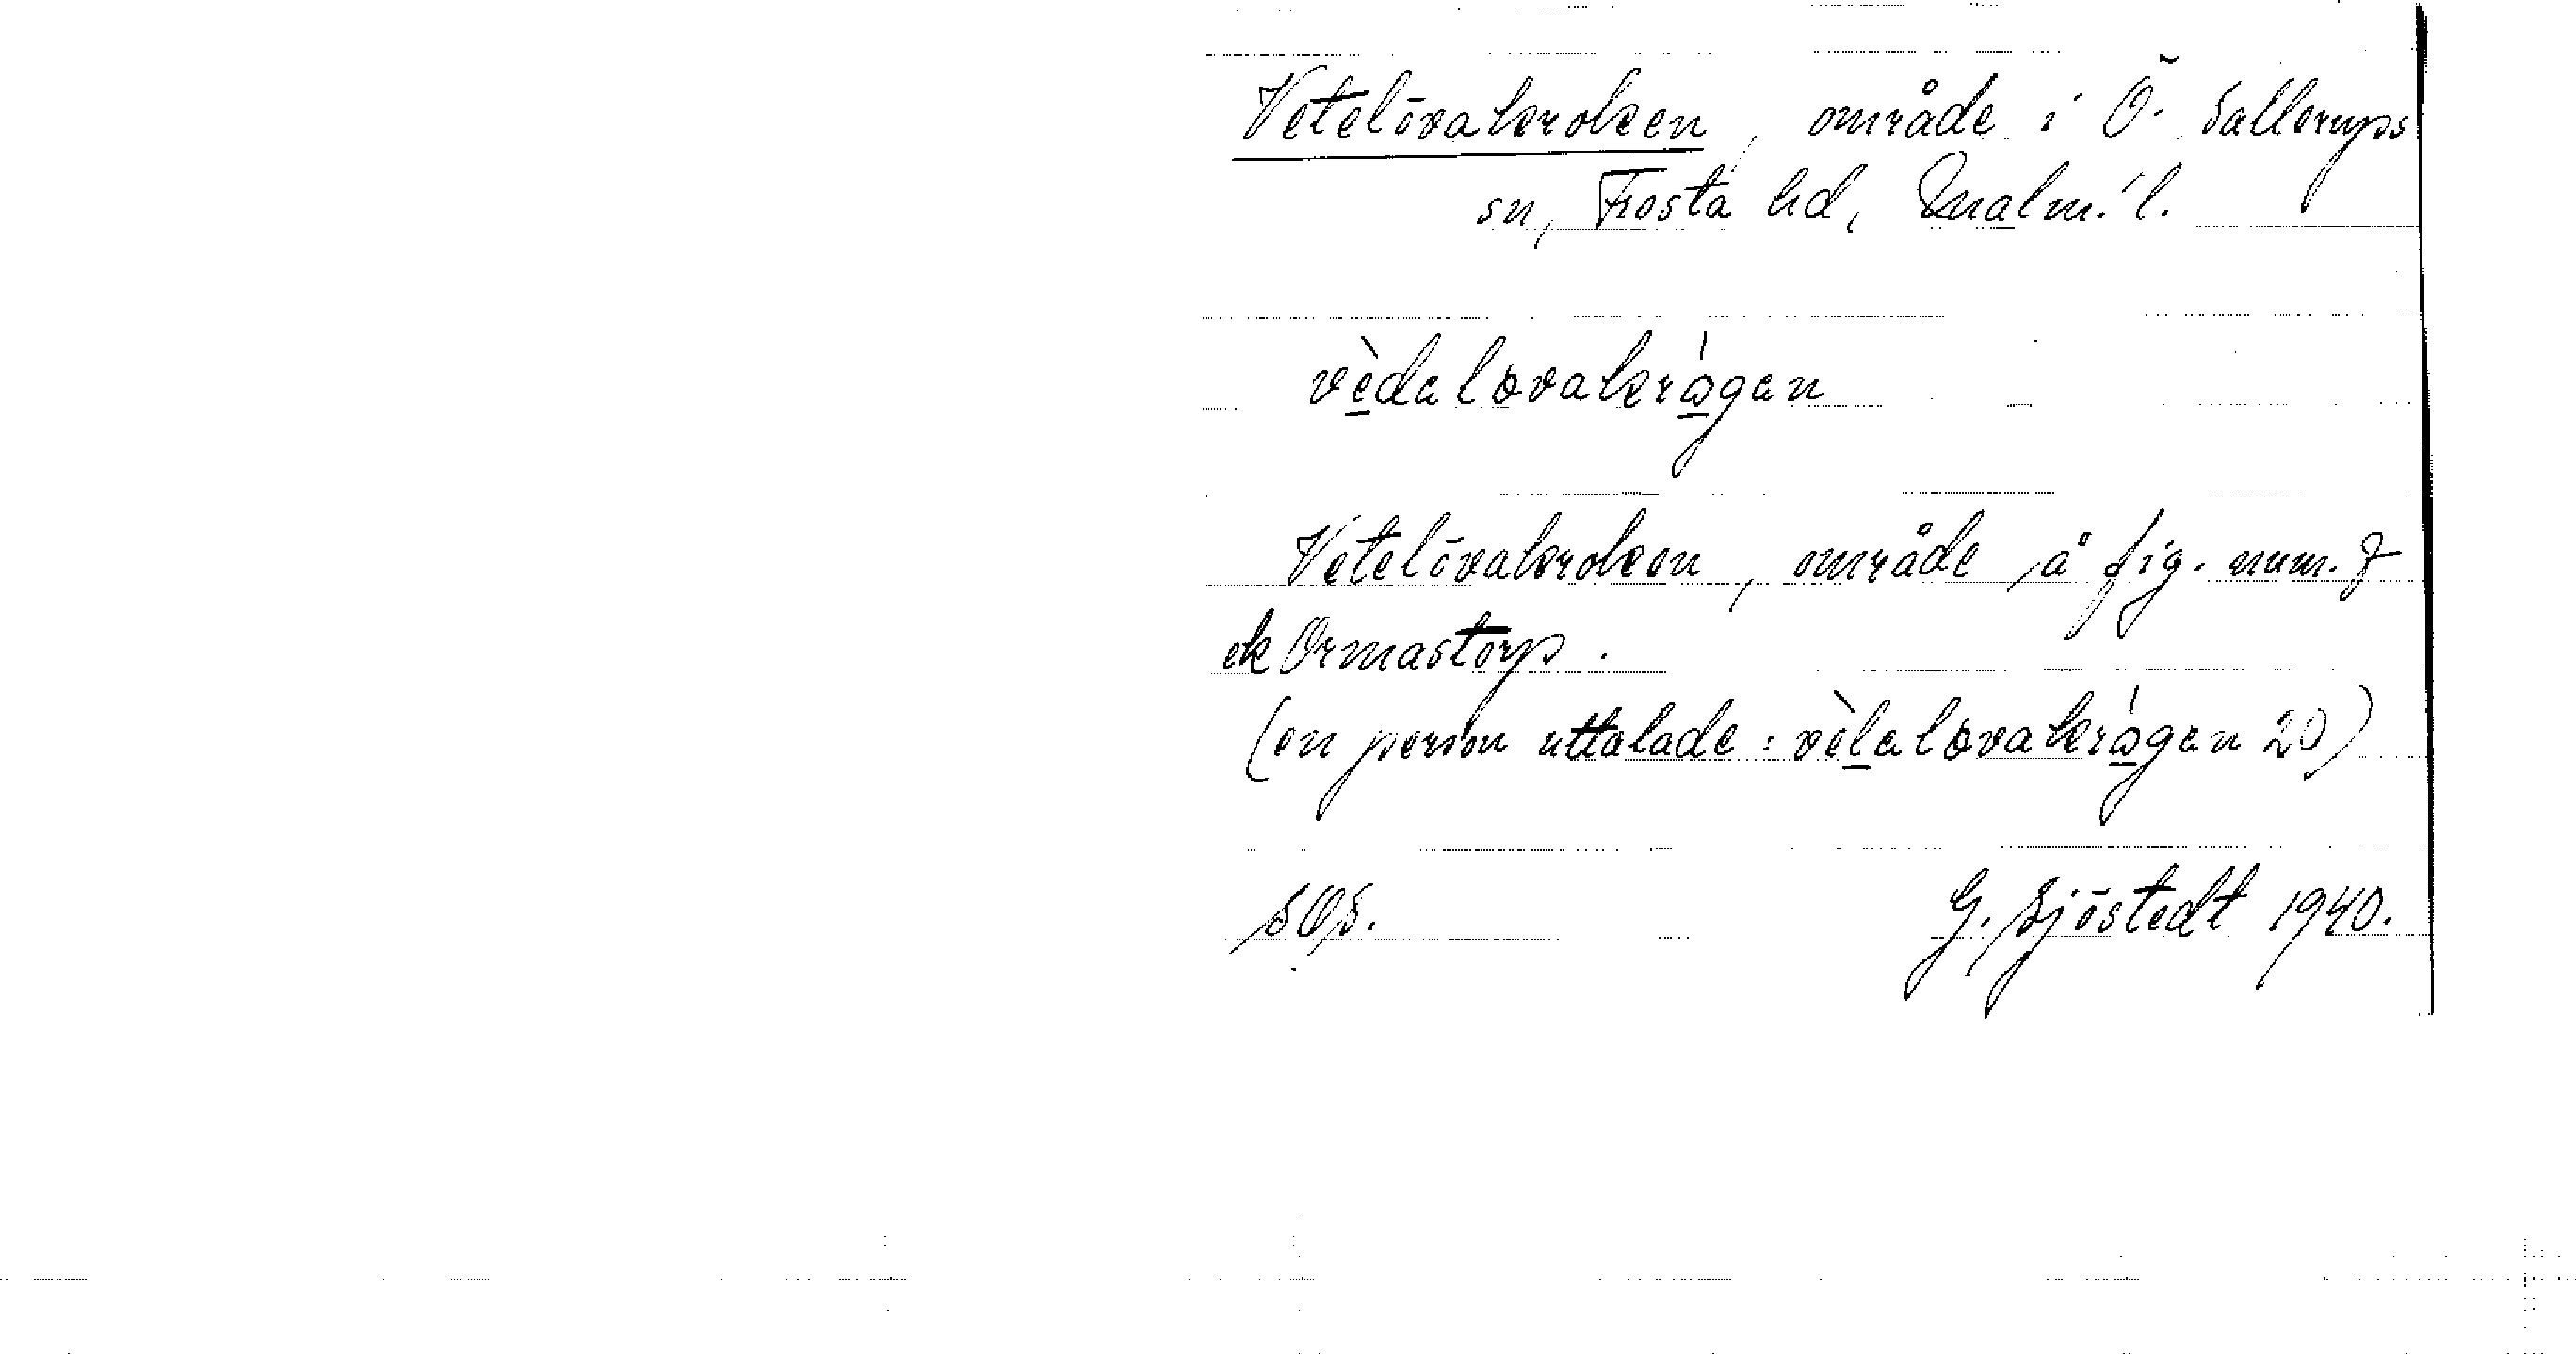 Vetelövakroken, område i Ö. Sallerups
sn, Frosta hd, Malm. l.
vèdaløvakrágan
Vetelövakroken, område å fig. num. 7
ek Ormastorp.
(en person uttalade: vèlaløvakrágan 20)
SOS.
G. Sjöstedt 1940.